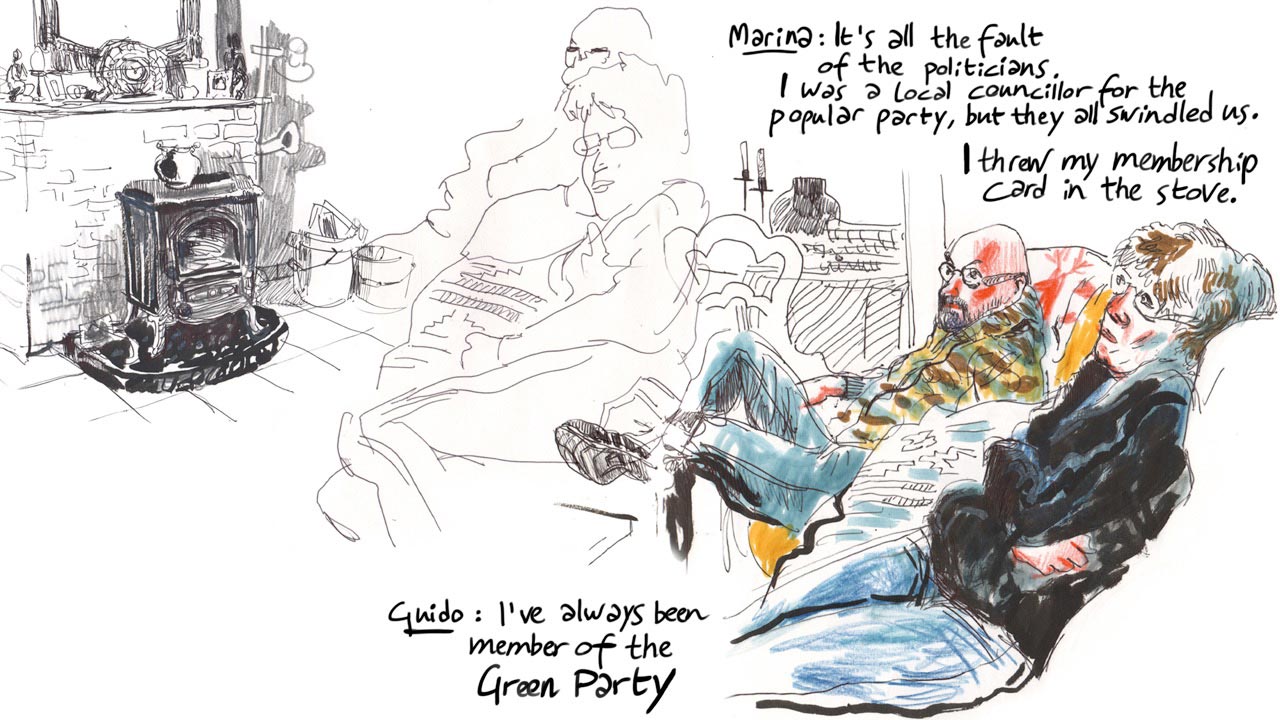 Marina: It's all the fault
of the politicians.
I was a local councillor for the
popular party, but they all swindled us.
I threw my membership
card in the stove.
Guido: I've always been
member of the
Green Party